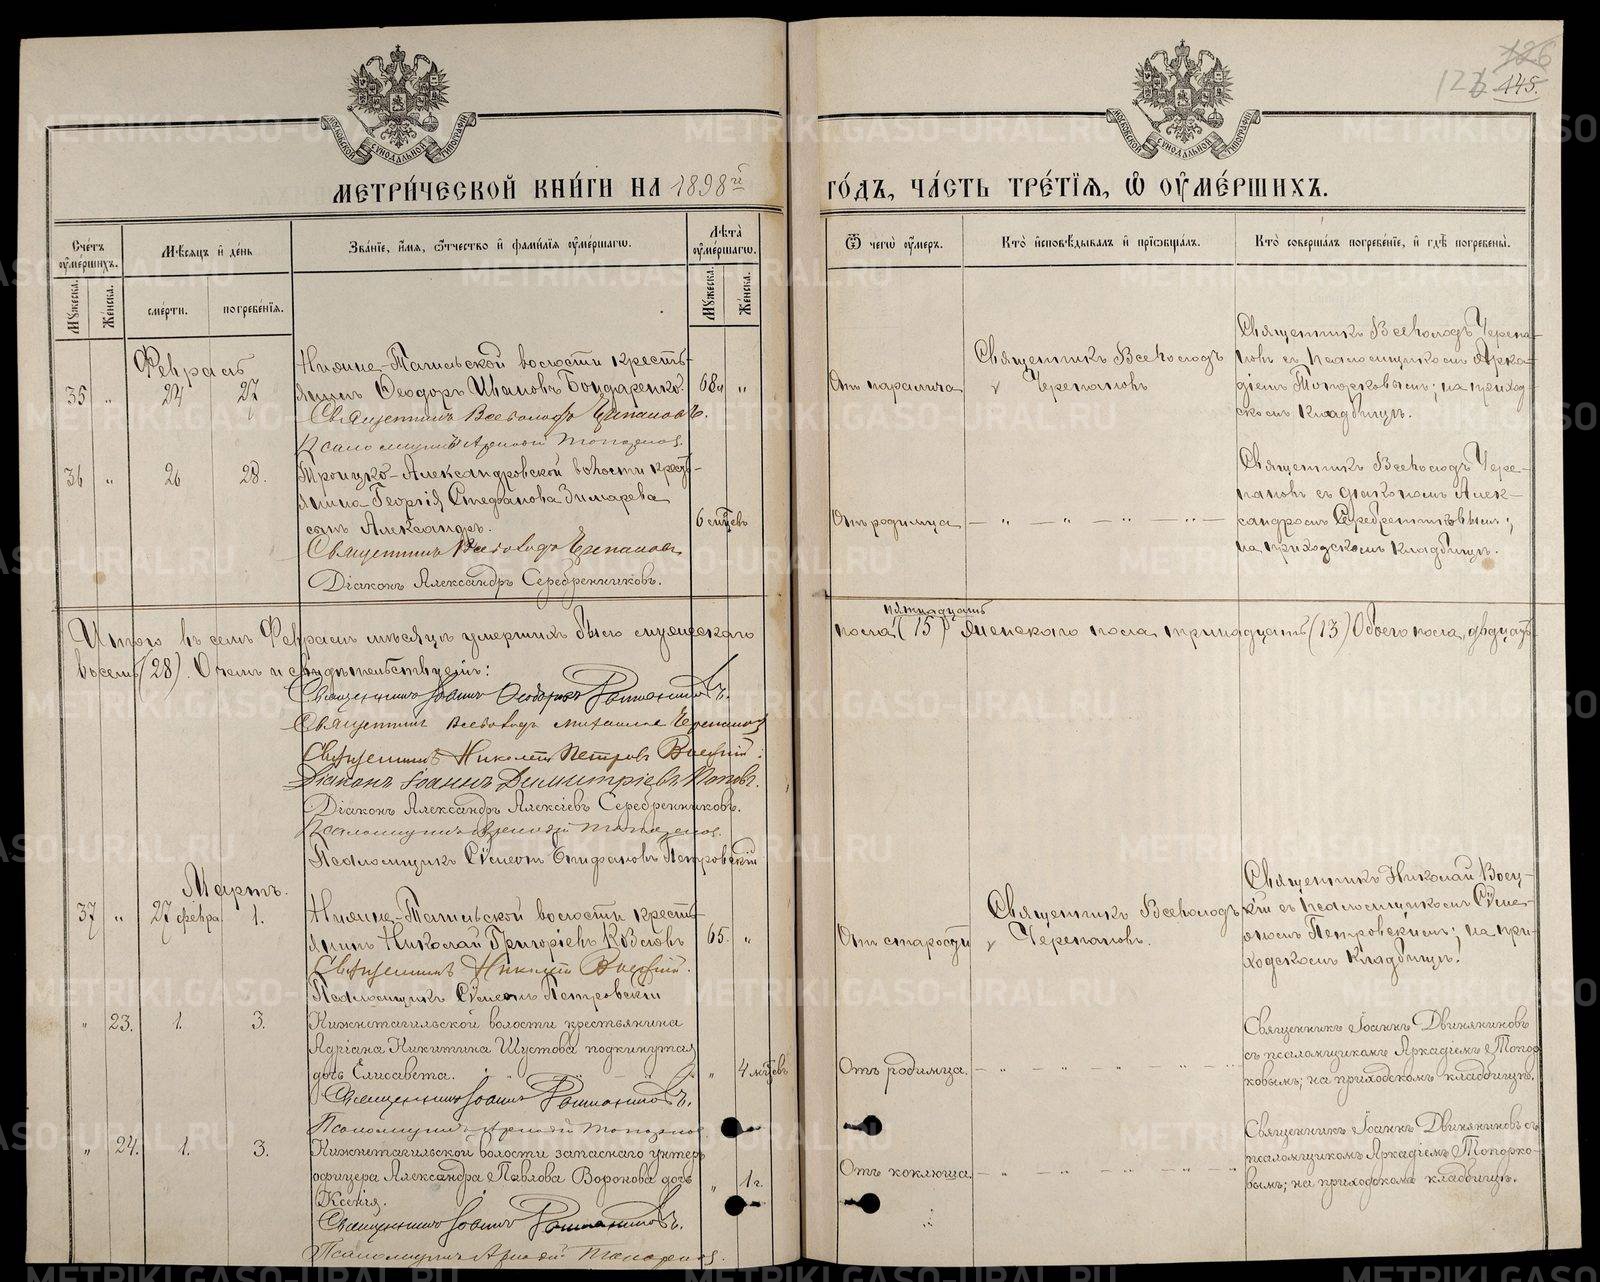 126
122 145.
МЕТРИ́ЧЕСКОЙ КНИ́ГИ НА 1898й ГО́ДЪ, ЧА́СТЬ ТРЕ́ТІЯ, Ѡ ОУМЕ́РШИХЪ.
Сче́тъ оуме́ршихъ.
Мꙋжеска.
Же́нска.
Мѣ́сяцъ и де́нь
сме́рти.
погребе́нія.
Зва́ніе, и́мя, ѻ́тчество и фами́лія оуме́ршагѡ.
Лѣта̀ оуме́ршагѡ.
Мꙋжеска.
Же́нска.
Ѿ чегѡ̀ оу́меръ.
Кто̀ исповѣ́дывалъ и прїѡбща́лъ.
Кто̀ соверша́лъ погребе́ніе, и гдѣ̀ погребены̀.
Февраль
35 " 24 27
Нижне-Тагильской волости кресть-
янинъ Ѳеодоръ Ивановъ Бондаренко. 68 "
Священникъ Всеволодъ Черепановъ.
Псаломщикъ Аркадій Топорковъ.
Отъ паралича
Священникъ Всеволодъ
Черепановъ
Священникъ Всеволодъ Черепа-
новъ съ псаломщикомъ Арка-
діемъ Топорковымъ; на приход-
скомъ кладбищѣ.
36 " 26 28.
Троицко-Александровской волости крестъ-
янина Георгія Стефанова Зимарева
сынъ Александръ. 6 мѣсяцевъ
Священникъ Всеволодъ Черепановъ
Діаконъ Александръ Серебренниковъ.
Отъ родимца — " — " — " — " —
Священникъ Всеволодъ Чере-
пановъ съ діакономъ Алек-
сандромъ Серебренниковымъ;
на приходскомъ кладбищѣ.
Итого въ семъ Февралѣ мѣсяцѣ умершихъ было мужескаго пола пятнадцать (15) женскаго пола тринадцать (13) Обоего пола двадцать
восемь (28). О чемъ и свидѣтельствуемъ:
Священникъ Іоаннъ Ѳеодоровъ Двиняниновъ.
Священникъ Всеволодъ Михаиловъ Черепановъ
Священникъ Николай Петровъ Воецкій.
Діаконъ Іоаннъ Димитріевъ Поповъ.
Діаконъ Александръ Алексіевъ Серебренниковъ.
Псаломщикъ Аркадій Топорковъ.
Псаломщикъ Сѵмеонъ Епифановъ Петровскій
Мартъ.
37 " 27 февра. 1.
Нижне-Тагильской волости кресть-
янинъ Николай Григоріевъ Козловъ 65. "
Священникъ Николай Воецкій.
Псаломщикъ Сѵмеонъ Петровскій
Отъ старости
Священникъ Всеволодъ
Черепановъ.
Священникъ Николай Воец-
кій съ псаломщикомъ Сѵме-
ономъ Петровскимъ; на при-
ходскомъ кладбищѣ.
" 23. 1. 3.
Нижнетагильской волости крестьянина
Адріана Никитина Шустова подкинутая
дочь Елисавета. " 4 мѣсяцевъ
Священникъ Іоаннъ Двиняниновъ.
Псаломщикъ Аркадій Топорковъ
Отъ родимца.
Священникъ Іоаннъ Двиняниновъ
съ псаломщикомъ Аркадіемъ Топор-
ковымъ; на приходскомъ кладбищѣ.
" 24. 1. 3.
Нижнетагильской волости запаснаго унтеръ
офицера Александра Павлова Воронова дочь
Ксенія. " 1 г.
Священникъ Іоаннъ Двиняниновъ.
Псаломщикъ Аркадій Топорковъ.
Отъ коклюша.
Священникъ Іоаннъ Двиняниновъ съ
псаломщикомъ Аркадіемъ Топорко-
вымъ; на приходскомъ кладбищѣ.
METRIKI.GASO-URAL.RU